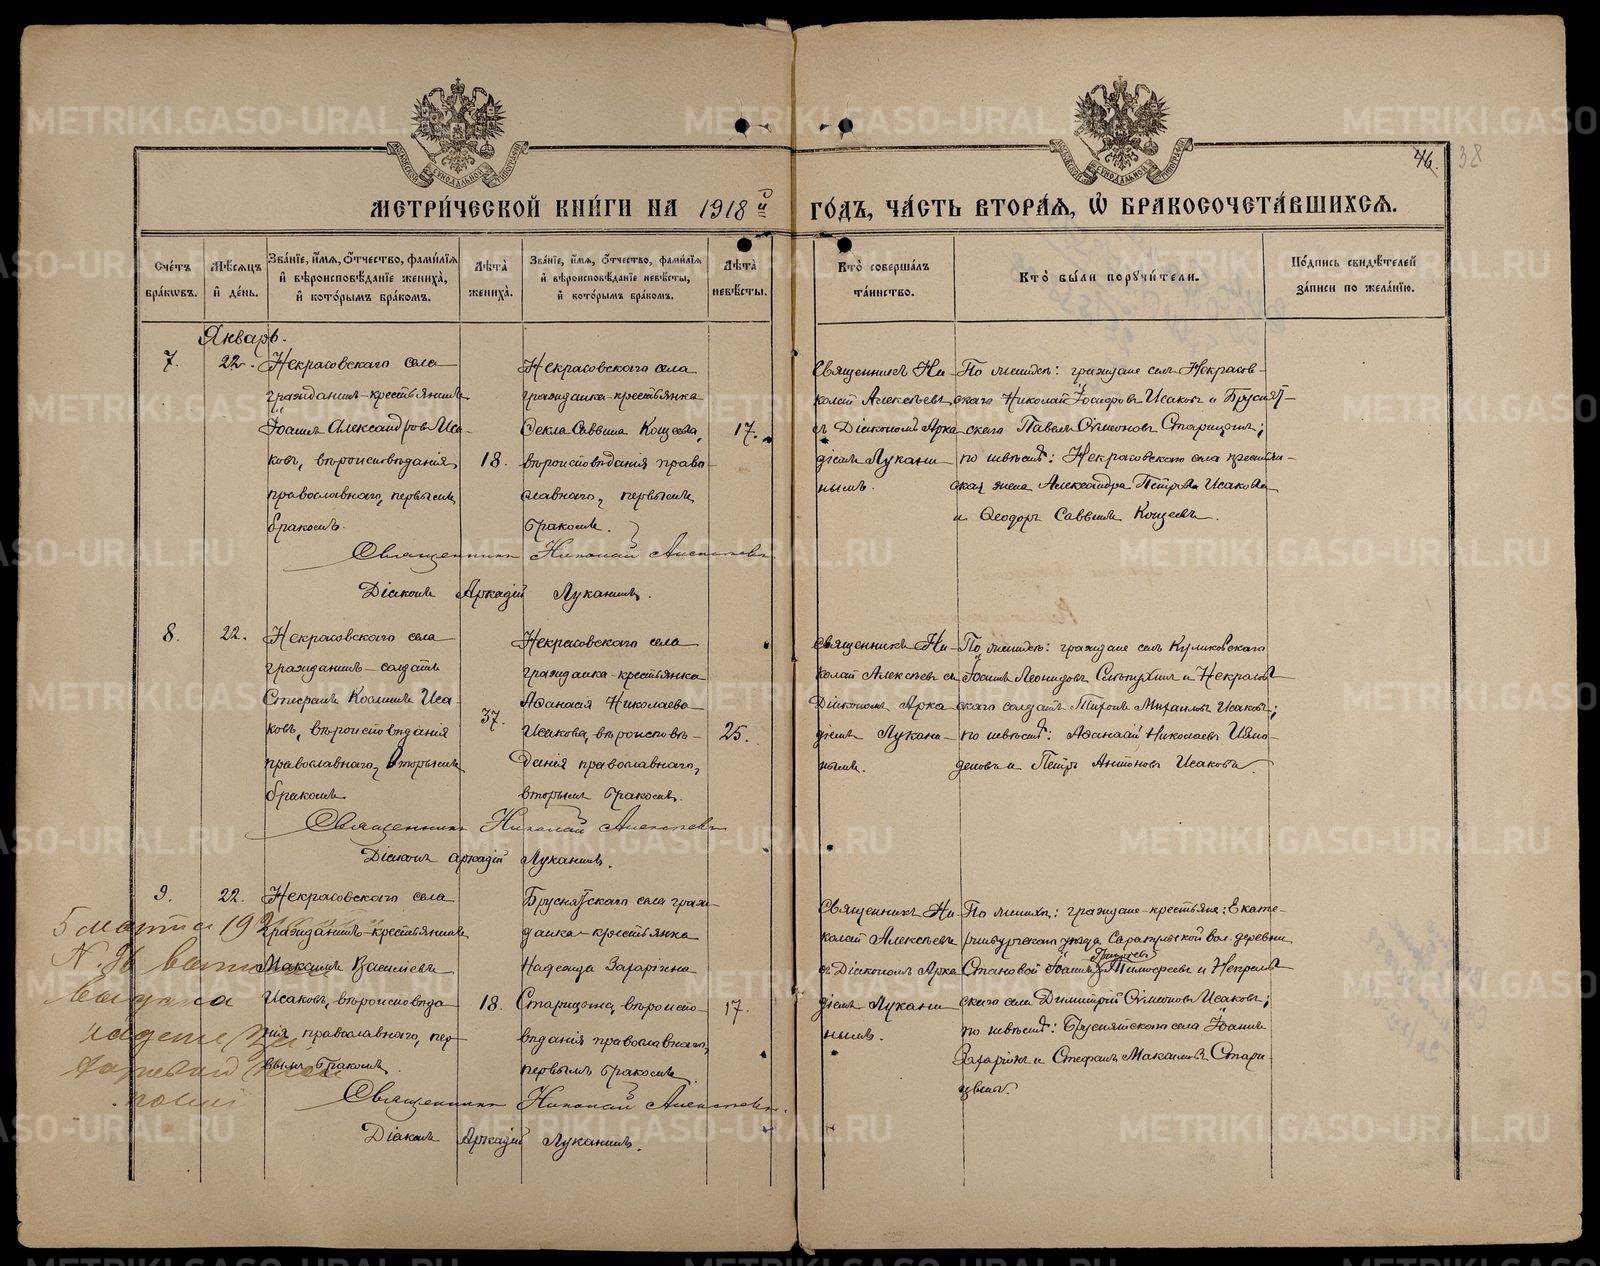 МЕТРИ́ЧЕСКОЙ КНИ́ГИ НА 1918 й ГО́ДЪ, ЧА́СТЬ ВТОРА́Я, Ѡ҆ БРАКОСОЧЕТА́ВШИХСЯ.
46. 38
Сче́тъ бра́кѡвъ.
Мѣ́сяцъ и҆ де́нь.
Зва́нїе, и҆́мя, ѻ҆́тчество, фами́лїя и҆ вѣроисповѣ́данїе жениха̀, и҆ кото́рымъ бра́комъ.
Лѣ́та жениха̀.
Зва́нїе, и҆́мя, ѻ҆́тчество, фами́лїя и҆ вѣроисповѣ́данїе невѣ́сты, и҆ кото́рымъ бра́комъ.
Лѣ́та невѣ́сты.
Кто̀ соверша́лъ та́инство.
Кто̀ бы́ли поручи́тели.
По́дпись свидѣ́телей за́писи по жела́нїю.
Январь.
7.
22.
Некрасовскаго села
гражданинъ-крестьянинъ
Іоаннъ Александровъ Иса-
ковъ, вѣроисповѣданія
православнаго, первымъ
бракомъ.
18.
Некрасовскаго села
гражданка-крестьянка
Ѳекла Саввина Кощеева,
вѣроисповѣданія право-
славнаго, первымъ
бракомъ.
17.
Священникъ Ни-
колай Алексѣевъ
съ Діакономъ Арка-
діемъ Лукани-
нымъ.
По женихѣ: граждане селъ Некрасов-
скаго Николай Іосифовъ Исаковъ и Бруснят-
скаго Павелъ Симеоновъ Старицынъ;
по невѣстѣ: Некрасовскаго села крестьян-
ская жена Александра Петрова Исакова
и Ѳеодоръ Саввинъ Кощеевъ.
Священникъ Николай Алексѣевъ
Діаконъ Аркадій Луканинъ.
8.
22.
Некрасовскаго села
гражданинъ-солдатъ
Стефанъ Козминъ Иса-
ковъ, вѣроисповѣданія
православнаго, вторымъ
бракомъ
37.
Некрасовскаго села
гражданка-крестьянка
Аѳанасія Николаева
Исакова, вѣроисповѣ-
данія православнаго,
вторымъ бракомъ.
25.
Священникъ Ни-
колай Алексѣевъ съ
Діакономъ Арка-
діемъ Лукани-
нымъ.
По женихѣ: граждане селъ Куликовскаго
Іоаннъ Леонидовъ и Некрасов-
скаго солдатъ Миронъ Михаиловъ Исаковъ;
по невѣстѣ: Аѳанасій Николаевъ
и Петръ Антоновъ Исаковы.
Священникъ Николай Алексѣевъ
Діаконъ Аркадій Луканинъ.
9.
22.
Некрасовскаго села
гражданинъ-крестьянинъ
Максимъ Василіевъ
Исаковъ, вѣроисповѣда-
нія православнаго, пер-
вымъ бракомъ.
18.
Бруснятскаго села граж-
данка-крестьянка
Надежда Захаріина
Старицына, вѣроиспо-
вѣданія православнаго,
первымъ бракомъ.
17.
Священникъ Ни-
колай Алексѣевъ
съ Діакономъ Арка-
діемъ Лукани-
нымъ.
По женихѣ: граждане-крестьяне: Екате-
ринбургскаго уѣзда Сарапульской вол. деревни
Становой Іоаннъ Тимоѳеевъ и Некрасов-
скаго села Димитрій Симеоновъ Исаковъ;
по невѣстѣ: Бруснятскаго села Іоаннъ
Захаріинъ и Стефанъ Максимовъ Стари-
цыны.
Священникъ Николай Алексѣевъ.
Діаконъ Аркадій Луканинъ.
5 марта 192
выдана
METRIKI.GASO-URAL.RU